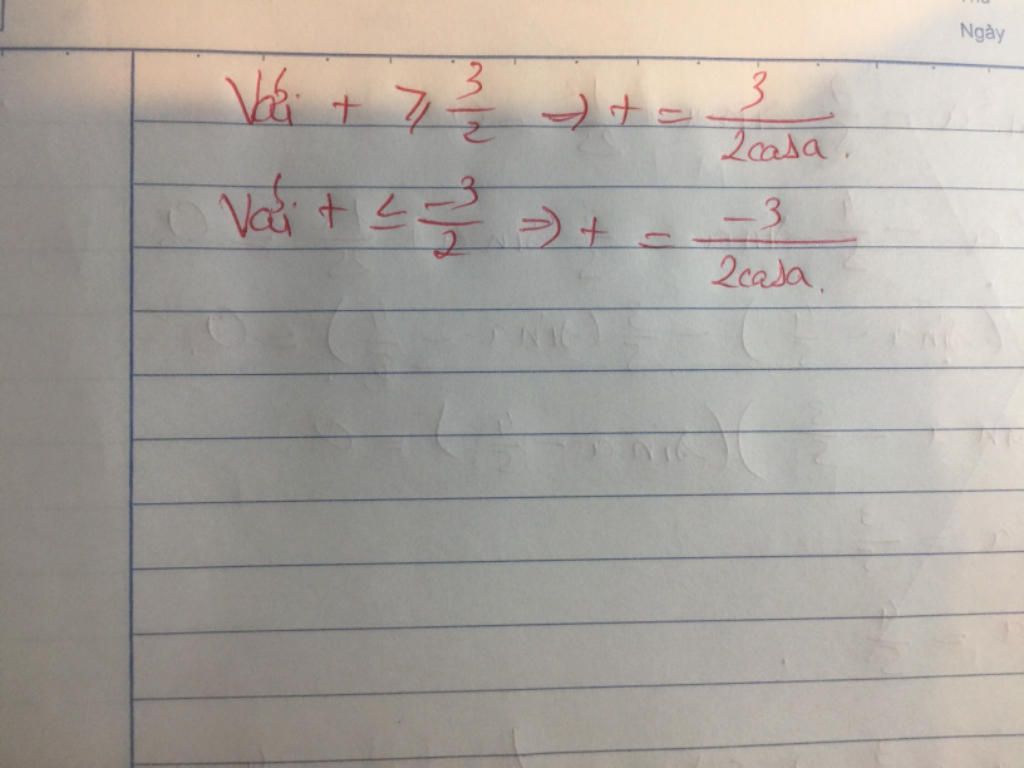 Ngày
Với t ≥ 3/2 ⇒ t = 3/(2cosa).
Với t ≤ -3/2 ⇒ t = -3/(2cosa).